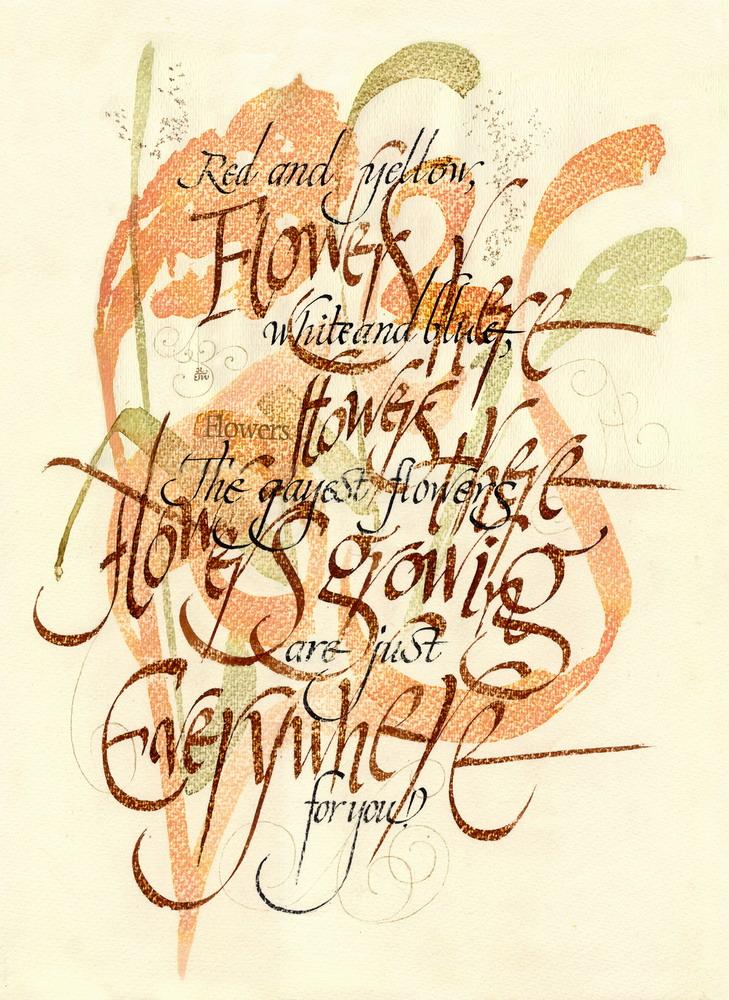 Red and yellow,
Flowers Here
white and blue,
flowers there
Flowers
The gayest flowers
flowers growing
are just
Everywhere
for you!